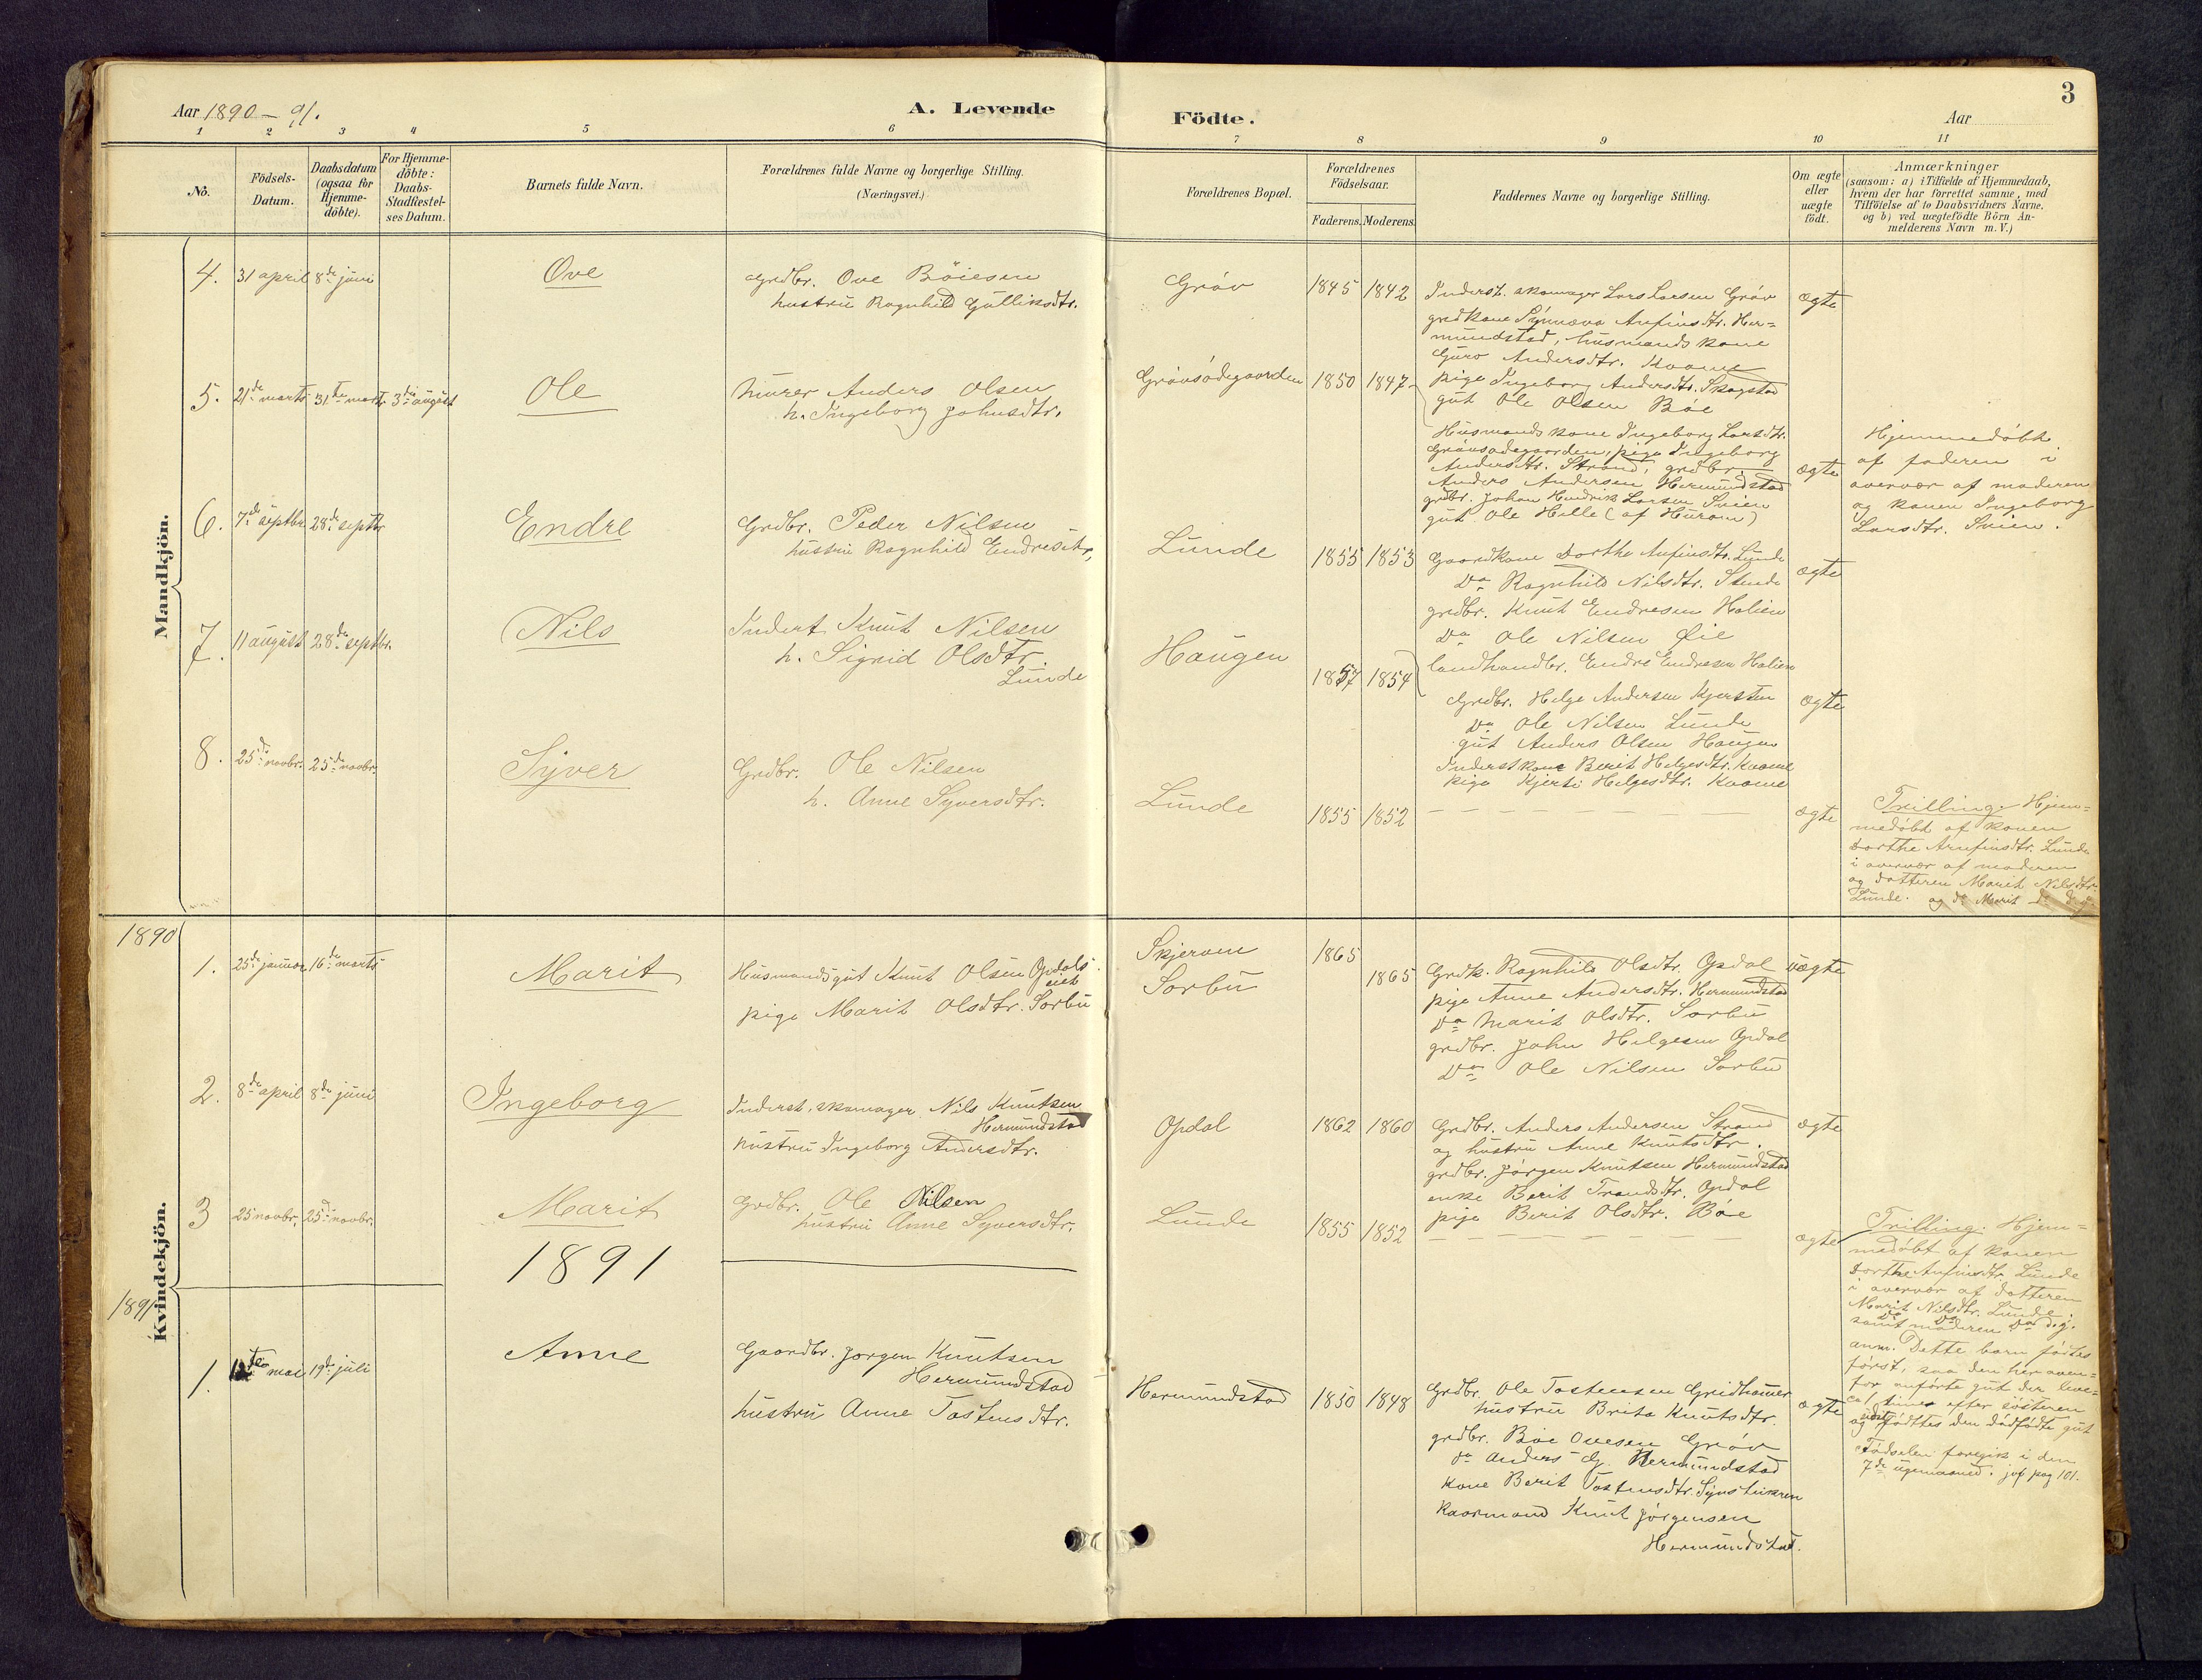 Aar 1890 - 91.
A. Levende
Födte.
Aar
3
1
2
3
4
5
6
7
8
9
10
11
No.
Födsels-
Datum.
Daabsdatum
(ogsaa for
Hjemme-
döbte).
For Hjemme-
döbte:
Daabs-
Stadfæstel-
ses Datum.
Barnets fulde Navn.
Forældrenes fulde Navne og borgerlige Stilling.
(Næringsvei.)
Forældrenes Bopæl.
Forældrenes
Födselsaar.
Faderens.
Moderens.
Faddernes Navne og borgerlige Stilling.
Om ægte
eller
uægte
födt.
Anmærkninger
(saasom: a) i Tilfælde af Hjemmedaab,
hvem der har forrettet samme, med
Tilföielse af to Daabsvidners Navne,
og b) ved uægtefödte Börn An-
melderens Navn m. V.)
Mandkjön.
4. 31 april 8de juni
Ove
Grdbr. Ove Böiesen
hustru Ragnhild Gulliksdtr.
Gröv
1845 1842
Inderst. skomager Lars Larsen Gröv
grdkone Synneva Anfinsdtr. Her=
mundstad, husmandskone
Guro Andersdtr. Kvame
pige Ingeborg Andersdtr. Skogstad
gut Ole Olsen Böe
ægte
5. 21de marts 31te marts 3die august
Ole
Murer Anders Olsen
h. Ingeborg Johnsdtr.
Grövsödegaarden
1850 1847
Husmandskone Ingeborg Larsdtr.
Grövsödegaarden, pige Ingeborg
Andersdtr. Strand, grdbr.
Anders Andersen Hermundstad
grdbr. Johan Hendrik Larsen Sveen
gut Ole Hille (af Hurum)
ægte
Hjemmedöbt
af faderen i
overvær af moderen
og konen Ingeborg
Larsdtr. Sveen.
6. 7de septbr. 28de septbr
Endre
Grdbr. Peder Nilsen
hustru Ragnhild Endresdtr.
Lunde
1855 1853
Gaardkone Dorthe Anfinsdtr. Lunde
Do Ragnhild Nilsdtr. Stende
grdbr. Knut Endresen Holien
Do Ole Nilsen Öie
landhandler. Endre Endresen Holien
ægte
7. 11 august 28de septbr.
Nils
Inderst Knut Nilsen
h. Sigrid Olsdtr.
Lunde
Haugen
1857 1854
Grdbr. Helge Andersen Kjersten
Do Ole Nilsen Lunde
gut Anders Olsen Haugen
Inderstkone Berit Helgesdtr. Kvame
pige Kjersti Helgesdtr. Kvame
ægte
8. 25de novbr. 25de novbr.
Syver
Grdbr. Ole Nilsen
h. Anne Syversdtr.
Lunde
1855 1852
— — — — — — — —
ægte
Trilling. Hjem=
medöbt af konen
Dorthe Arnfinsdtr. Lunde
i overvær af moderen
og datteren Marit Nilsdtr.
Lunde.
Kvindekjön.
1890
1. 25de januar 16de marts
Marit
Husmandsgut Knut Olsen Opdals
eiet
pige Marit Olsdtr. Sorbu
Skjerven
Sorbu
1865
1865
Grdk. Ragnhild Olsdtr. Opdal
pige Anne Andersdtr. Hermundstad
Do Marit Olsdtr. Sorbu
grdbr. John Helgesen Opdal
Do Ole Nilsen Sorbu
uægte
2. 8de april 8de juni
Ingeborg
Inderst, skomager Nils Knutsen
Hermundstad
hustru Ingeborg Andersdtr.
Opdal
1862 1860
Grdbr. Anders Andersen Strand
og hustru Anne Knutsdtr.
grdbr. Jörgen Knutsen Hermundstad
enke Berit Trondsdtr. Opdal
pige Berit Olsdtr. Böe
ægte
3 25 novbr. 25de novbr.
Marit
Grdbr. Ole Nilsen
hustru Anne Syversdtr.
Lunde
1855 1852
— — — — — — — —
ægte
Trilling. Hjem=
medöbt af konen
Dorthe Anfinsdtr. Lunde
i overvær af datteren
Marit Nilsdtr. Lunde.
samt moderen
anm. Dette barn födtes
först, saa den her oven=
for anförte gut der leve=
time efter sösteren
og sidst födtes den dödfödte gut
Födselen foregik i den
7de ugemaaned. jvf pag 101.
1891
1891
1. mai 19de juli
Anne
Gaardbr. Jörgen Knutsen
Hermundstad
hustru Anne Tostensdtr.
Hermundstad
1850 1848
Grdbr. Ole Tostensen Gridhamer
hustru Brita Knutsdtr.
grdbr. Böe Ovesen Gröv
do Anders G. Hermundstad
kone Berit Tostensdtr.
Kaarmand Knut Jörgensen
Hermundstad.
ægte